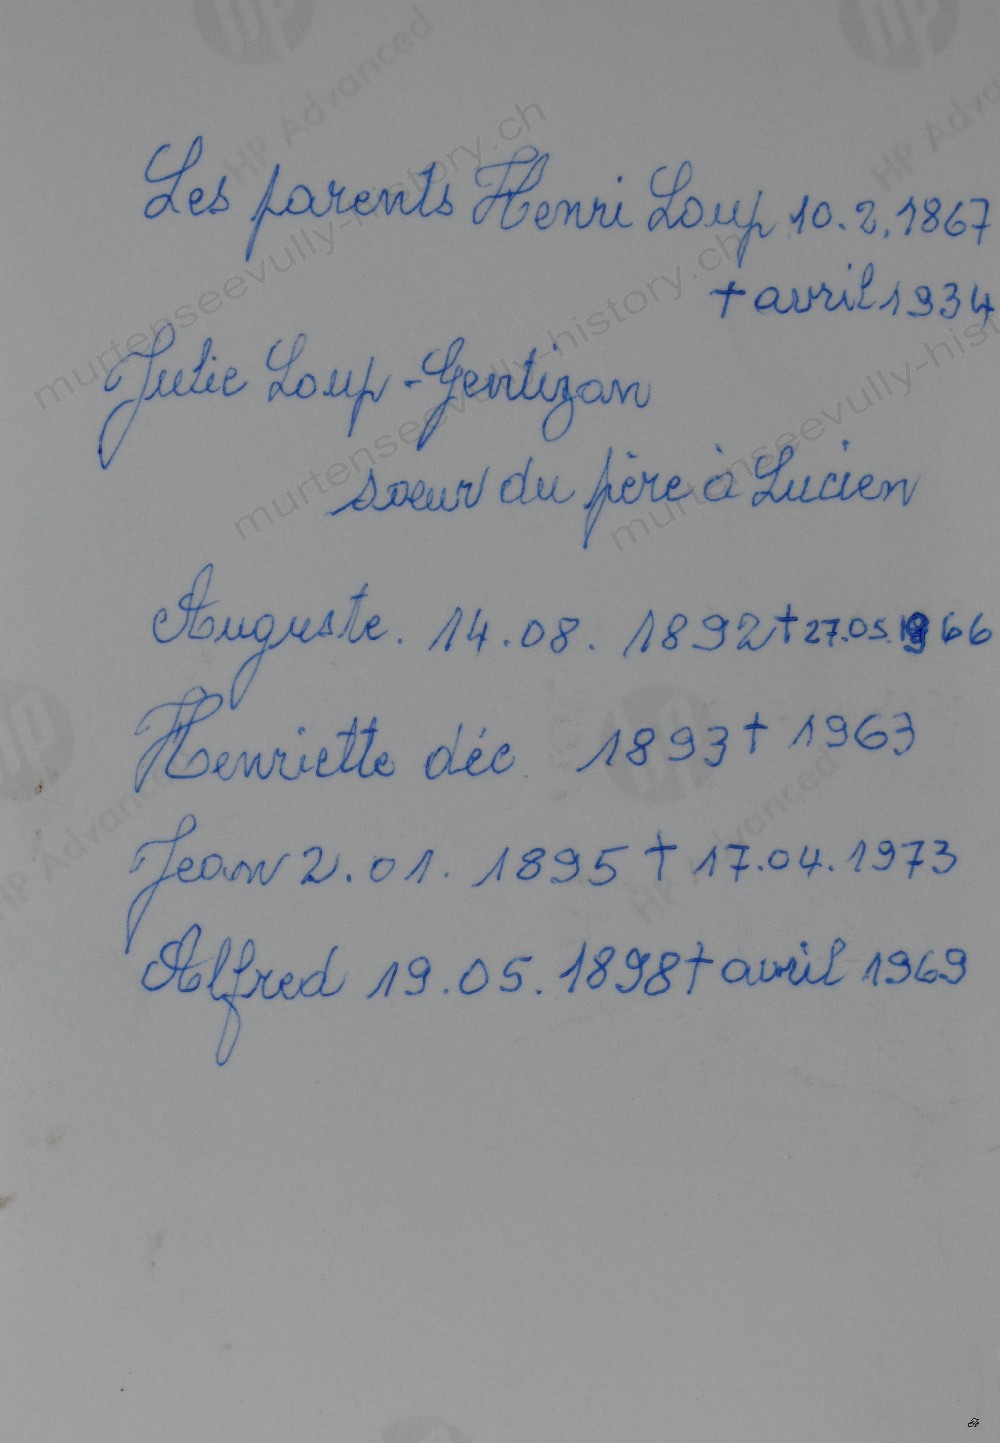 Les parents Henri Loup 10.2.1867
+ avril 1934
Julie Loup-Gentizon
soeur du père à Lucien
Auguste. 14.08.1892 + 27.05.1966
Henriette déc. 1893 + 1963
Jean 2.01.1895 + 17.04.1973
Alfred 19.05.1898 + avril 1969
HP Advanced
HP Advanced
HP Advanced
HP Advanced
murtenseevully-history.ch
murtenseevully-history.ch
murtenseevully-hist